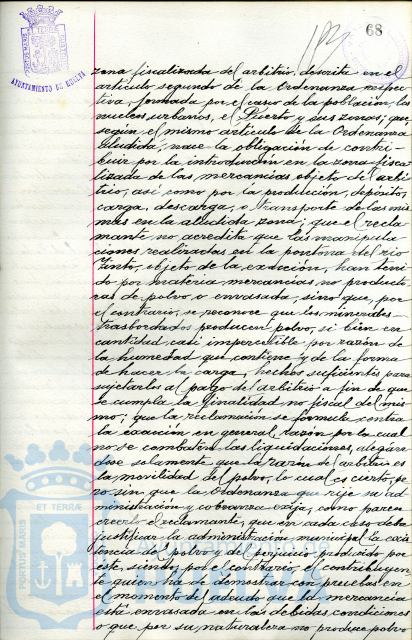 68
PORTUS MARIS ET TERRÆ CUSTODIA
AYUNTAMIENTO DE HUELVA
zona fiscalizada del arbitrio, descrita en el
artículo segundo de la Ordenanza respec-
tiva, formada por el casco de la población, los
nucleos urbanos, el Puerto y sus zonas; que,
según el mismo artículo de la Ordenanza
aludida, nace la obligación de contri-
buir por la introducción en la zona fisca-
lizada de las mercancias objeto del arbi-
trio, así como por la producción, depósito,
carga, descarga, o transporte de las mis-
mas en la aludida zona; que el recla-
mante no acredita que las manipula-
ciones realizadas en la pontona del rio
Tinto, objeto de la exacción, han teni-
do por materia mercancias no producto-
ras de polvo o envasada, sino que, por
el contrario, se reconoce que los minerales
trasbordados producen polvo, si bien en
cantidad casi imperceptible por razón de
la humedad que contiene y de la forma
de hacer la carga, hechos suficientes para
sujetarlos al pago del arbitrio a fin de que
se cumpla la finalidad no fiscal del mis-
mo; que la reclamación se formula contra
la exacción en general, razón por la cual
no se combaten las liquidaciones, alegán-
dose solamente que la razón del arbitrio es
la movilidad del polvo, lo cual es cierto, pe-
ro sin que la Ordenanza que rije su ad-
ministración y cobranza exija, como parece
creerlo el reclamante, que en cada caso deba
justificar la administración municipal la exis-
tencia del polvo y del perjuicio producido por
este, siendo, por el contrario, el contribuyen-
te quien ha de demostrar con pruebas en
el momento del adeudo que la mercancia
está envasada en las debidas condiciones
o que por su naturaleza no produce polvo
PORTUS MARIS ET TERRÆ